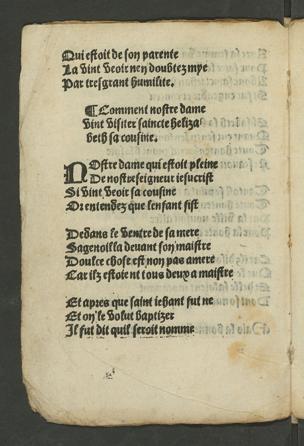 Qui estoit de son parente
La vint veoir nen doubtez mye
Par tresgrant humilite.
¶Comment nostre dame
vint visiter saincte heliza
beth sa cousine.
NOstre dame qui estoit pleine
De nostreseigneur iesucrist
Si vint veoir sa cousine
Or entendez que lenfant fist
Dedans le ventre de sa mere
Sagenoilla deuant son maistre
Doulce chose est non pas amere
Car ilz estoient tous deux a maistre
Et apres que saint iehant fut ne
Et on le volut baptizer
Il fut dit quil seroit nomme